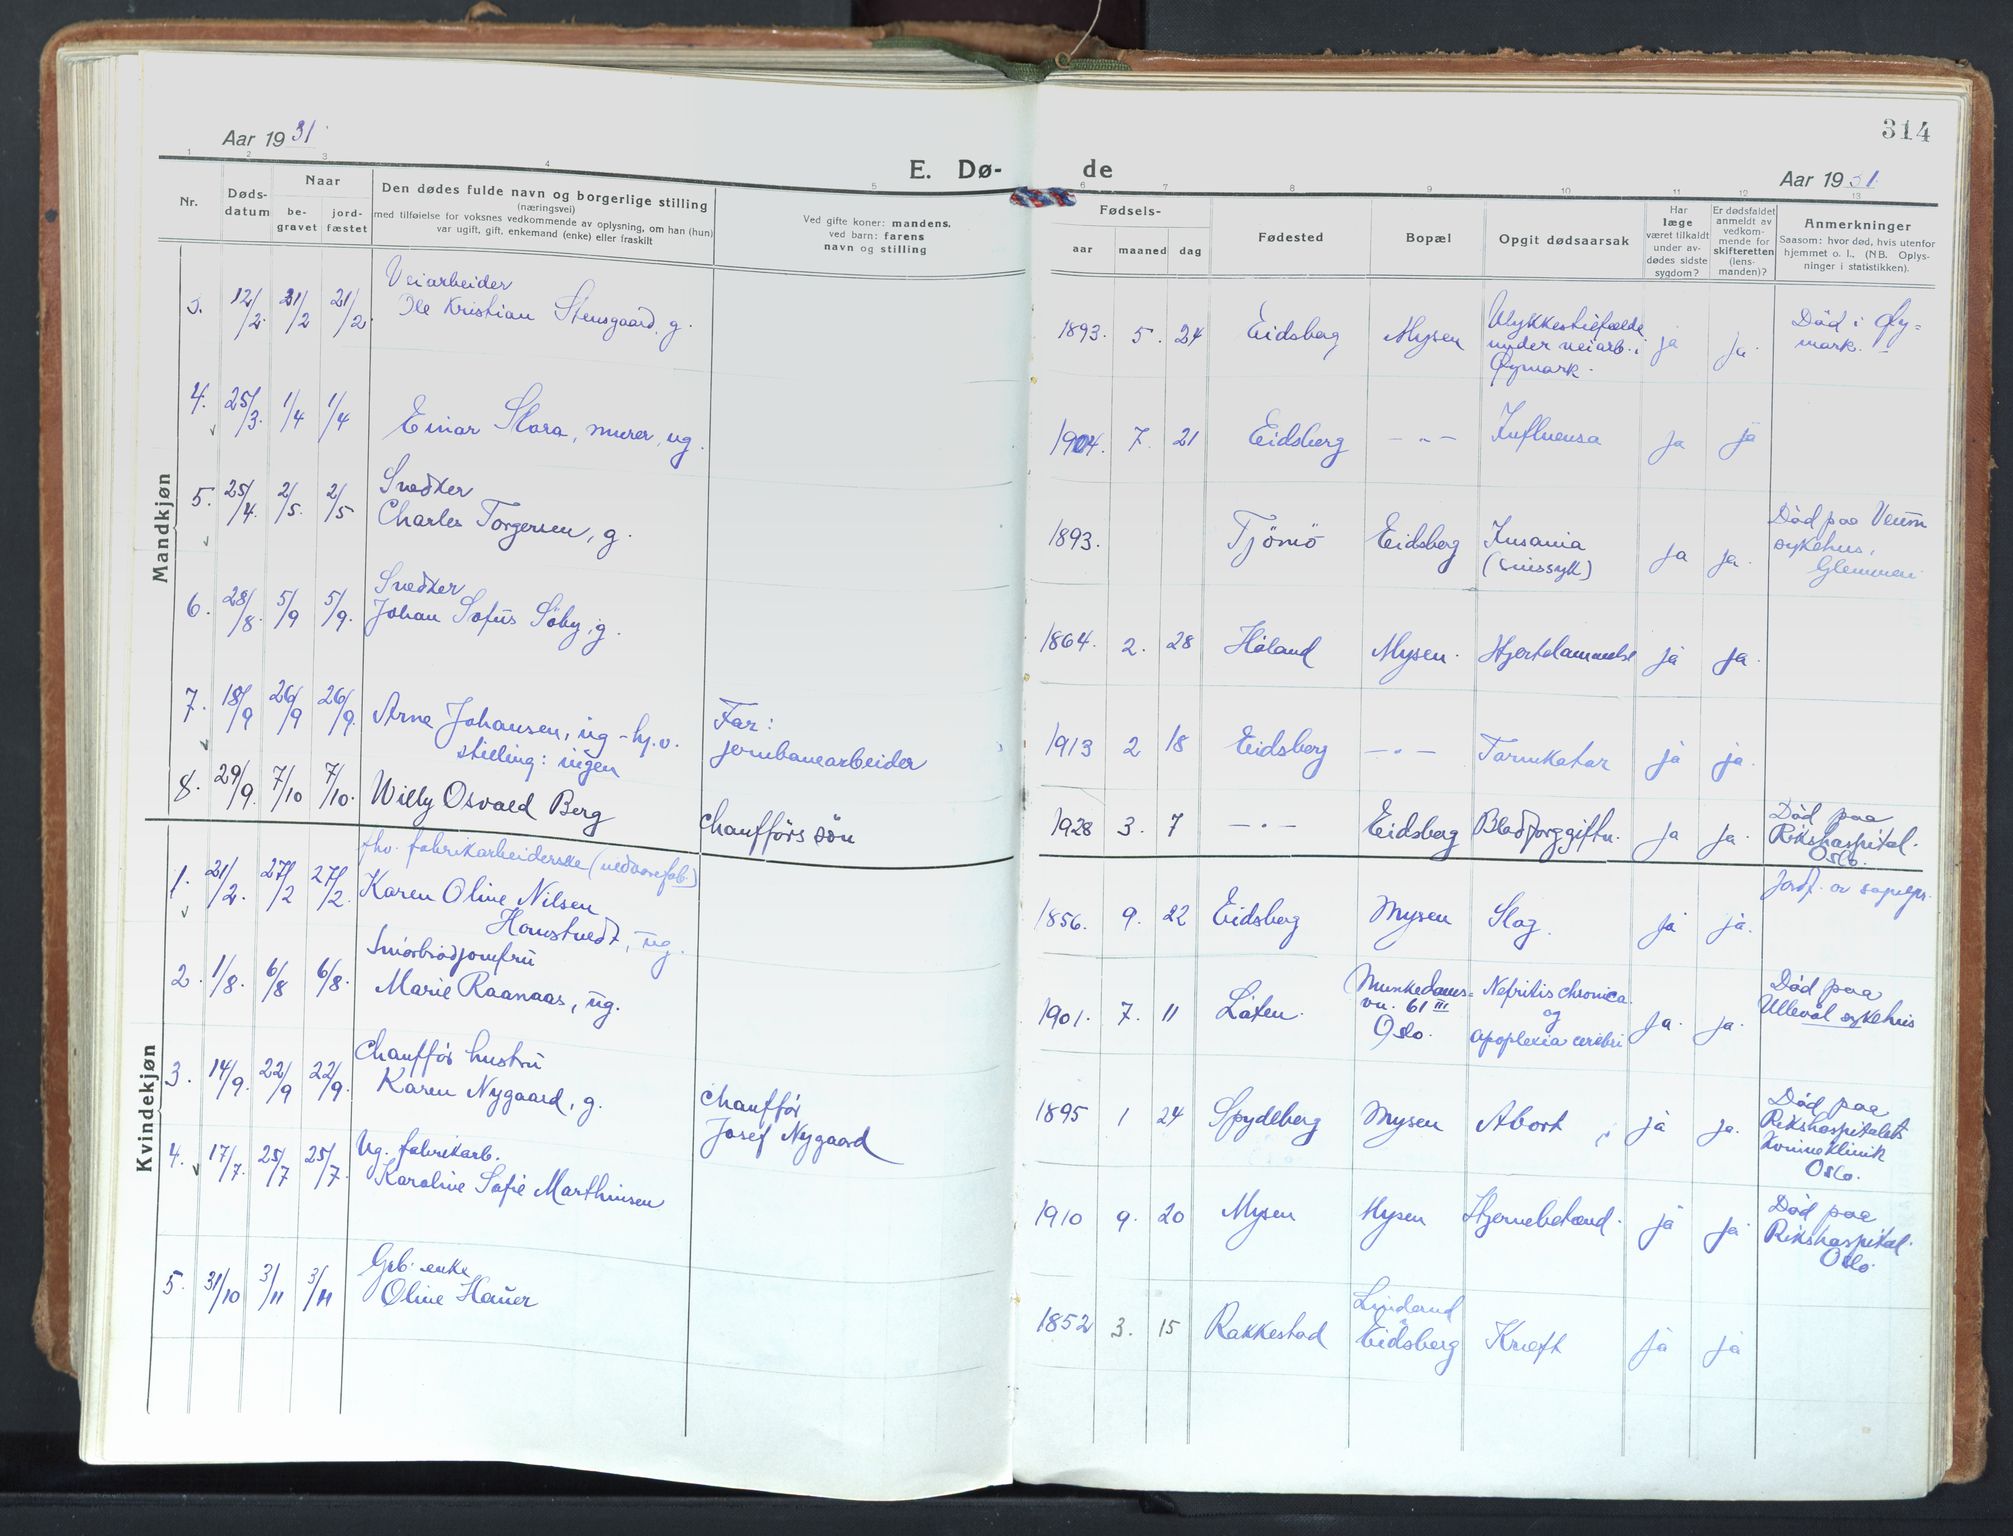 Aar 1931
E. Dø-
de
314
Aar 1931
1 2 3 4 5 6 7 8 9 10 11 12 13
Nr.
Døds-
datum
Naar
be-
gravet
jord-
fæstet
Den dødes fulde navn og borgerlige stilling
(næringsvei)
med tilføielse for voksnes vedkommende av oplysning, om han (hun)
var ugift, gift, enkemand (enke) eller fraskilt
Ved gifte koner: mandens,
ved barn: farens
navn og stilling
Fødsels-
aar
maaned
dag
Fødested
Bopæl
Opgit dødsaarsak
Har
læge
været tilkaldt
under av-
dødes sidste
sygdom?
Er dødsfaldet
anmeldt av
vedkom-
mende for
skifteretten
(lens-
manden)?
Anmerkninger
Saasom: hvor død, hvis utenfor
hjemmet o. l., (NB. Oplys-
ninger i statistikken).
Mandkjøn
3. 12/2. 21/2 21/2.
Veiarbeider
Ole Kristian Stensgaard, g.
1893. 5. 24 Eidsberg Mysen
Ulykkestilfælde
under veiarb. i
Øymark.
ja ja.
Død i Øy=
mark.
4. 25/3. 1/4 1/4
Einar Slora, murer, ug.
1904. 7. 21 Eidsberg -„- Influensa ja ja
5. 25/4. 2/5. 2/5
Snedker
Charles Torgersen, g.
1893. Tjömö Eidsberg
Insania
(sinssyk)
ja ja.
Død paa Veum
sykehus,
Glemmen
6. 28/8. 5/9 5/9.
Snedker
Johan Sofus Söby, g.
1864. 2. 28 Høland Mysen. Hjertelammelse ja ja.
7. 18/9 26/9 26/9.
Arne Johansen, ug - hj.v.
stilling: ingen
Far:
jernbanearbeider
1913 2 18 Eidsberg -„- Tarmkatar ja ja.
8. 29/9. 7/10 7/10.
Willy Osvald Berg
chaufförs sön
1928 3. 7 -„- Eidsberg Blodforggiftn. ja ja.
Død paa
Rikshospital.
Oslo.
Kvindekjøn
1. 21/2. 27/2 27/2.
fhv. fabrikarbeiderske (uldvarefab.)
Karen Oline Nilsen
Homstvedt, ug.
1856. 9. 22 Eidsberg Mysen Slag. ja ja.
Jordf. av sognepr.
2. 1/8. 6/8 6/8.
Smörbrödjomfru
Marie Raanaas, ug.
1901. 7. 11 Löten.
Munkedams=
vn. 61 III
Oslo.
Nefritis chronica
og
apoplexia cerebri
ja. ja.
Død paa
Ullevål sykehus
3. 14/9. 22/9 22/9.
Chauffør hustru
Karen Nygaard, g.
chauffør
Josef Nygaard
1895 1 24 Spydeberg Mysen Abort ja ja.
Død paa
Rikshospitalets
Kvinneklinik
Oslo.
4. 17/7. 25/7 25/7.
Ug. fabrikarb.
Karoline Sofie Marthinsen
1910 9. 20 Mysen Mysen Hjernebetænd. ja ja
Død paa
Rikshospital.
Oslo.
5. 31/10 3/11 3/11
Grb. enke
Oline Hauer
1852 3. 15 Rakkestad
Eidsberg
Kreft ja ja